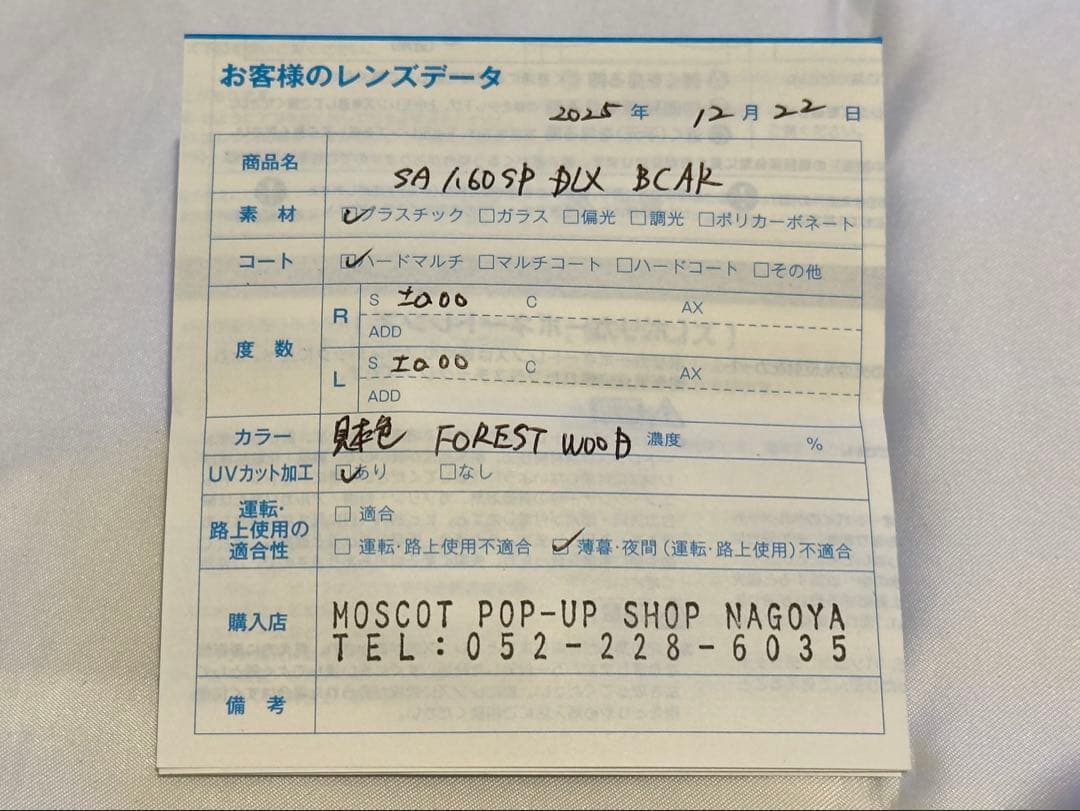 お客様のレンズデータ
2025年 12月 22日
商品名 SA 1.60SP DLX BCAR
素材 ☑プラスチック □ガラス □偏光 □調光 □ポリカーボネート
コート ☑ハードマルチ □マルチコート □ハードコート □その他
度数 R S ±0.00 C AX
ADD
L S ±0.00 C AX
ADD
カラー 見本色 FOREST WOOD 濃度 %
UVカット加工 ☑あり □なし
運転・路上使用の適合性 □適合
□運転・路上使用不適合 ☑薄暮・夜間(運転・路上使用)不適合
購入店 MOSCOT POP-UP SHOP NAGOYA
TEL:052-228-6035
備考